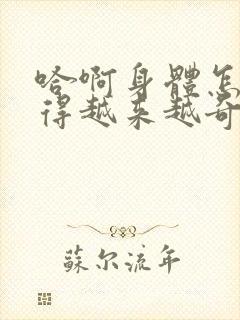 哈啊身體怎
得越来越奇
蘇尔流年